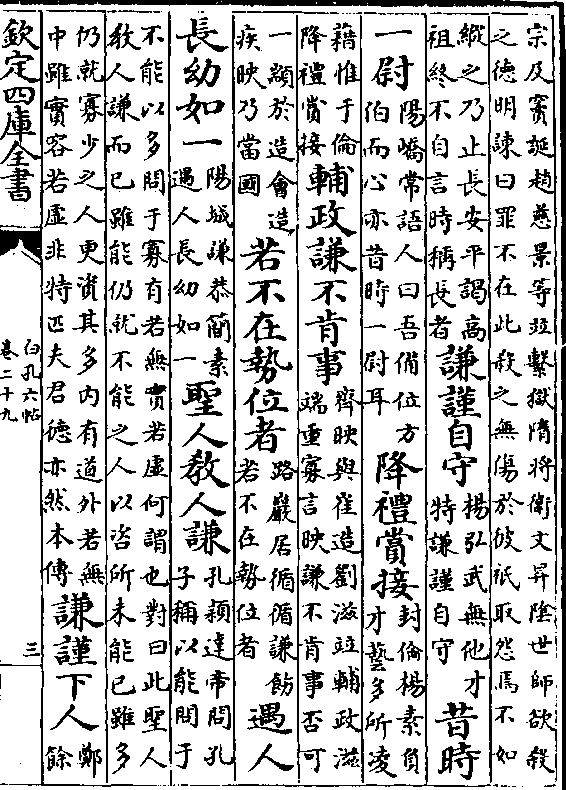 宗及竇誕趙慈景等並繫獄隋將衛文昇陰世師欲殺
之德明諫曰罪不在此殺之無傷於彼祗取怨焉不如
縱之乃止長安平謁高
祖終不自言時稱長者
謙謹自守
楊弘武無他才
特謙謹自守
昔時
一尉
陽嶠常語人曰吾備位方
伯而心亦昔時一尉耳
降禮賞接
封倫楊素負
才藝多所凌
藉惟于倫
降禮賞接
輔政謙不肯事
齊映與崔造劉滋並輔政滋
端重寡言映謙不肯事否可
一顓於造會造
疾映乃當國
若不在勢位者
路巖居循循謙飭
若不在勢位者
遇人
長幼如一
陽城謙恭簡素
遇人長幼如一
聖人教人謙
孔穎達帝問孔
子稱以能問于
不能以多問于寡有若無實若虛何謂也對曰此聖人
教人謙而已雖能仍就不能之人以咨所未能已雖多
仍就寡少之人更資其多内有道外若無
中雖實容若虛非特匹夫君德亦然本傳
謙謹下人
鄭
餘
欽定四庫全書
白孔六帖
卷二十九
三